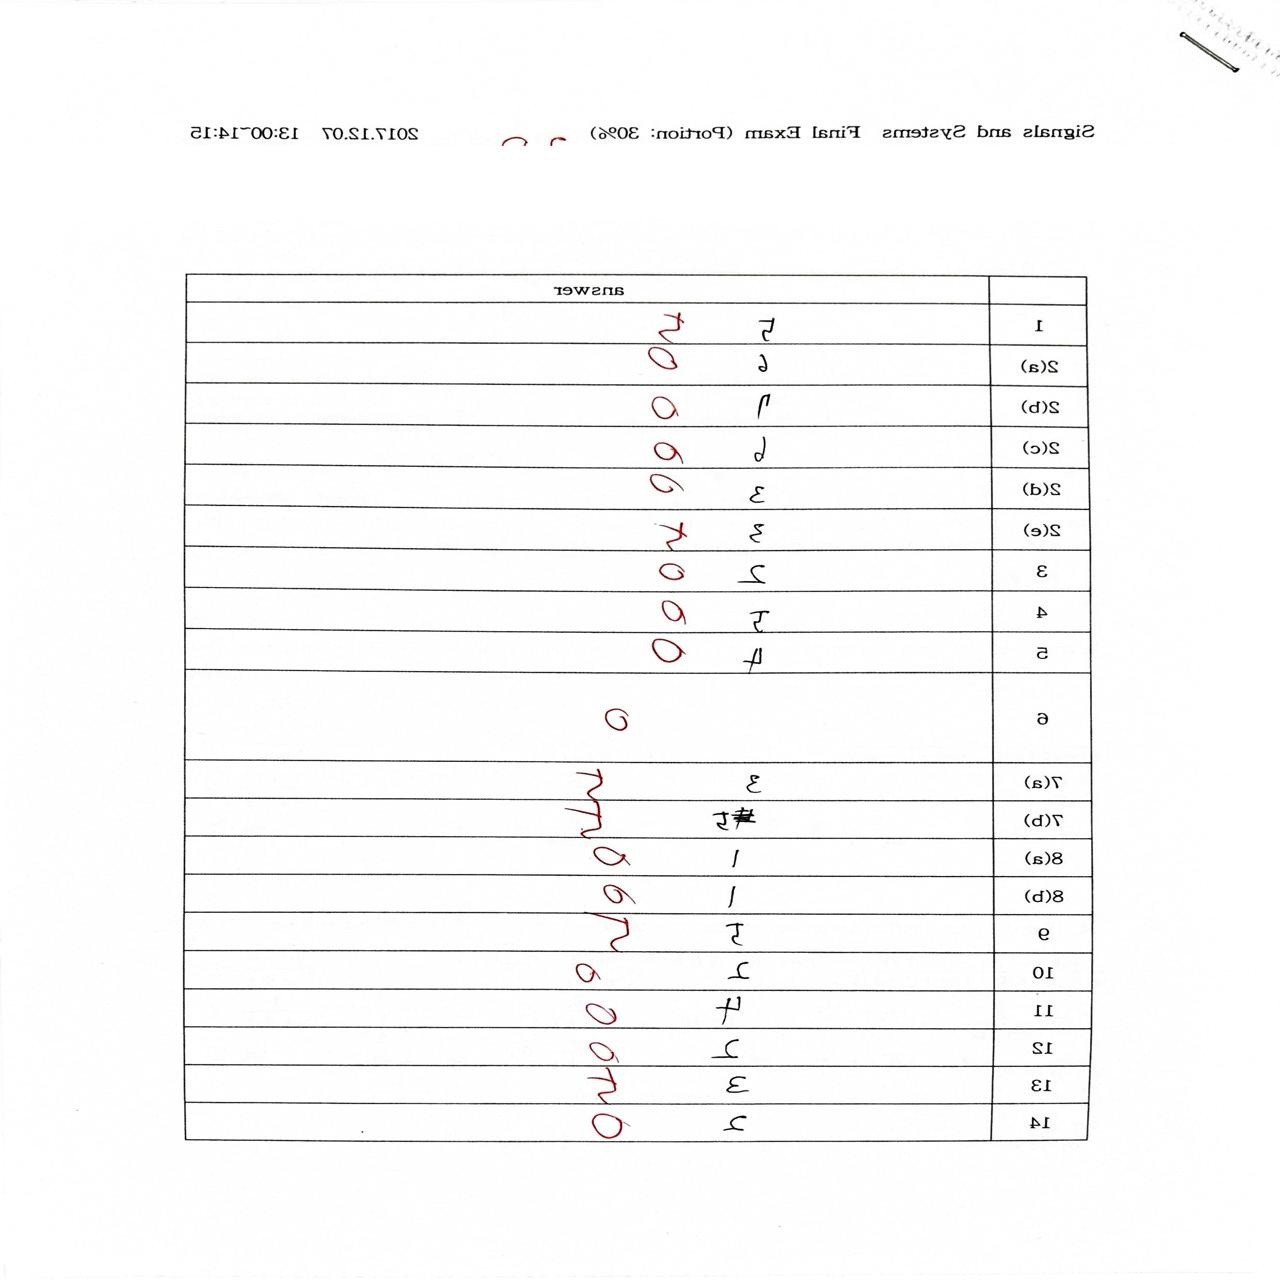 Signals and Systems Final Exam (Portion: 30%) 2017.12.07 13:00~14:15
answer
1 5
2(a) 6
2(b) 7
2(c) 6
2(d) 3
2(e) 3
3 2
4 5
5 4
6 0
7(a) 3
7(b) 5
8(a) 1
8(b) 1
9 5
10 2
11 4
12 2
13 3
14 2